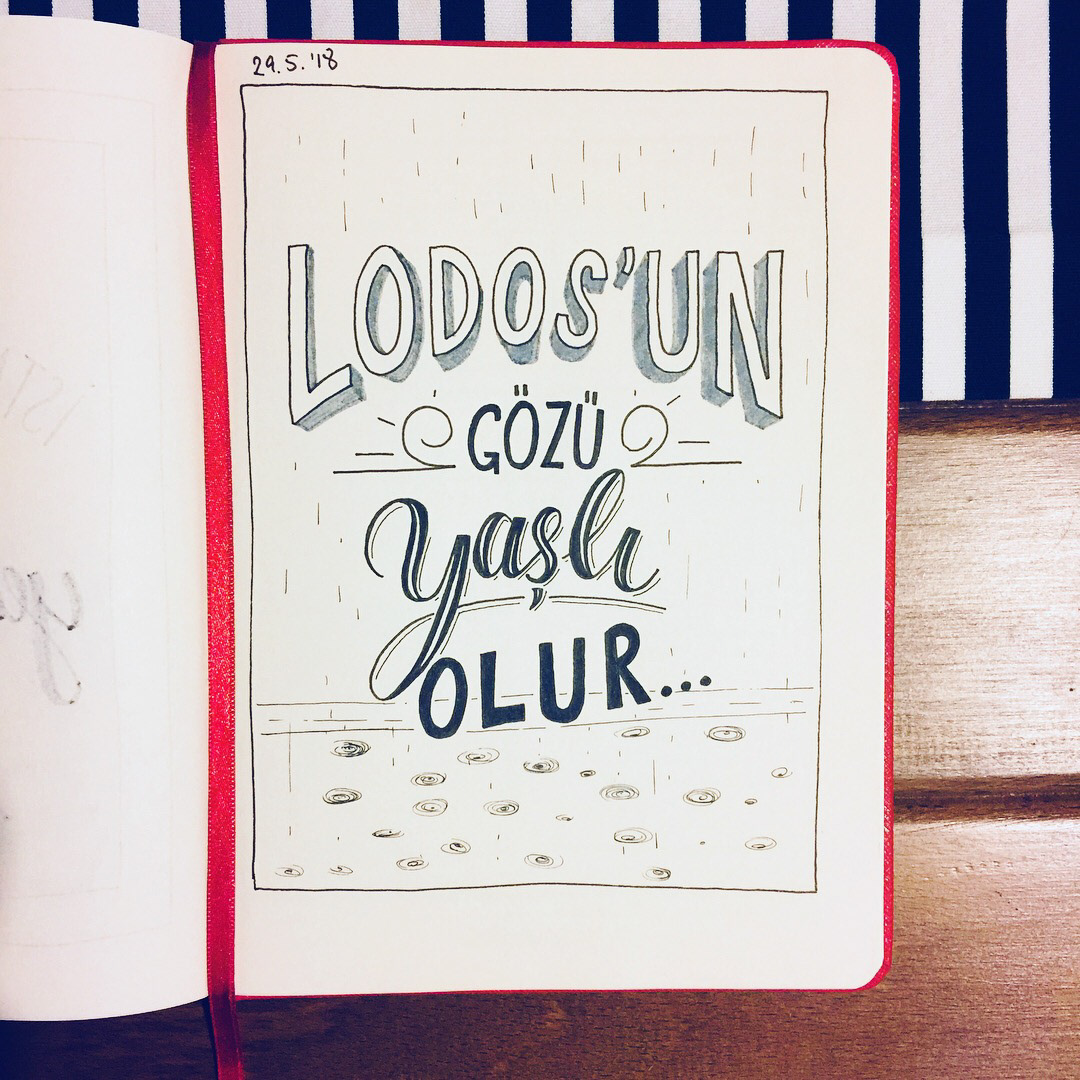 29.5.'18
LODOS'UN
GÖZÜ
yaşlı
OLUR...